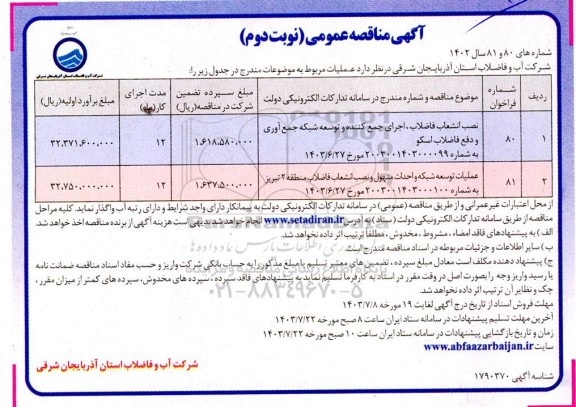 آگهی مناقصه عمومی (نوبت دوم)
شرکت آب و فاضلاب استان آذربایجان شرقی
شماره های ۸۰ و ۸۱ سال ۱۴۰۲
شرکت آب و فاضلاب استان آذربایجان شرقی در نظر دارد عملیات مربوط به موضوعات مندرج در جدول زیر را:
ردیف | شماره فراخوان | موضوع مناقصه و شماره مندرج در سامانه تدارکات الکترونیکی دولت | مبلغ سپرده تضمین شرکت در مناقصه(ریال) | مدت اجرای کار(ماه) | مبلغ برآورد اولیه(ریال)
۱ | ۸۰ | نصب انشعاب فاضلاب ، اجرای جمع کننده و توسعه شبکه جمع آوری و دفع فاضلاب اسکو به شماره ۲۰۰۳۰۰۱۴۰۳۰۰۰۰۹۹ مورخ ۱۴۰۳/۶/۲۷ | ۱,۶۱۸,۵۸۰,۰۰۰ | ۱۲ | ۳۲,۳۷۱,۶۰۰,۰۰۰
۲ | ۸۱ | عملیات توسعه شبکه و احداث منهول و نصب انشعاب فاضلاب منطقه ۲ تبریز به شماره ۲۰۰۳۰۰۱۴۰۳۰۰۰۱۰۰ مورخ ۱۴۰۳/۶/۲۷ | ۱,۶۳۷,۵۰۰,۰۰۰ | ۱۲ | ۳۲,۷۵۰,۰۰۰,۰۰۰
از محل اعتبارات غیرعمرانی و از طریق مناقصه (عمومی) در سامانه تدارکات الکترونیکی دولت به پیمانکار دارای واجد شرایط و دارای رتبه آب واگذار نماید. کلیه مراحل
مناقصه از طریق سامانه تدارکات الکترونیکی دولت ( ستاد) به آدرس www.setadiran.ir انجام خواهد شد بدیهی ست هزینه آگهی از برنده مناقصه اخذ خواهد شد.
الف) به پیشنهادهای فاقد امضاء ، مشروط ، مخدوش ، مطلقاً ترتیب اثر داده نخواهد شد.
ب) سایر اطلاعات و جزئیات مربوطه در اسناد مناقصه مندرج است.
ج) پیشنهاد دهنده مکلف است معادل مبلغ سپرده ، تضمین های معتبر تسلیم یا مبلغ مذکور را به حساب بانکی شرکت واریز و حسب مفاد اسناد مناقصه ضمانت نامه
یا رسید واریز وجه را بصورت اصل در وقت مقرر در اسناد به کارفرما تسلیم نماید به پیشنهادهای فاقد سپرده ، سپرده های مخدوش، سپرده های کمتر از میزان مقرر ،
چک و نظایر آن ترتیب اثر داده نخواهد شد.
۰۲۱-۸۸۳۴۹۶۷۰-۵
مهلت فروش اسناد از تاریخ درج آگهی لغایت ۱۹ مورخه ۱۴۰۳/۷/۸
آخرین مهلت تسلیم پیشنهادات در سامانه ستاد ایران ساعت ۸ صبح مورخه ۱۴۰۳/۷/۲۲
زمان و تاریخ بازگشایی پیشنهادات در سامانه ستاد ایران ساعت ۱۰ صبح مورخه ۱۴۰۳/۷/۲۲
سایت www.abfaazarbaijan.ir
شرکت آب و فاضلاب استان آذربایجان شرقی
شناسه آگهی ۱۷۹۰۳۷۰